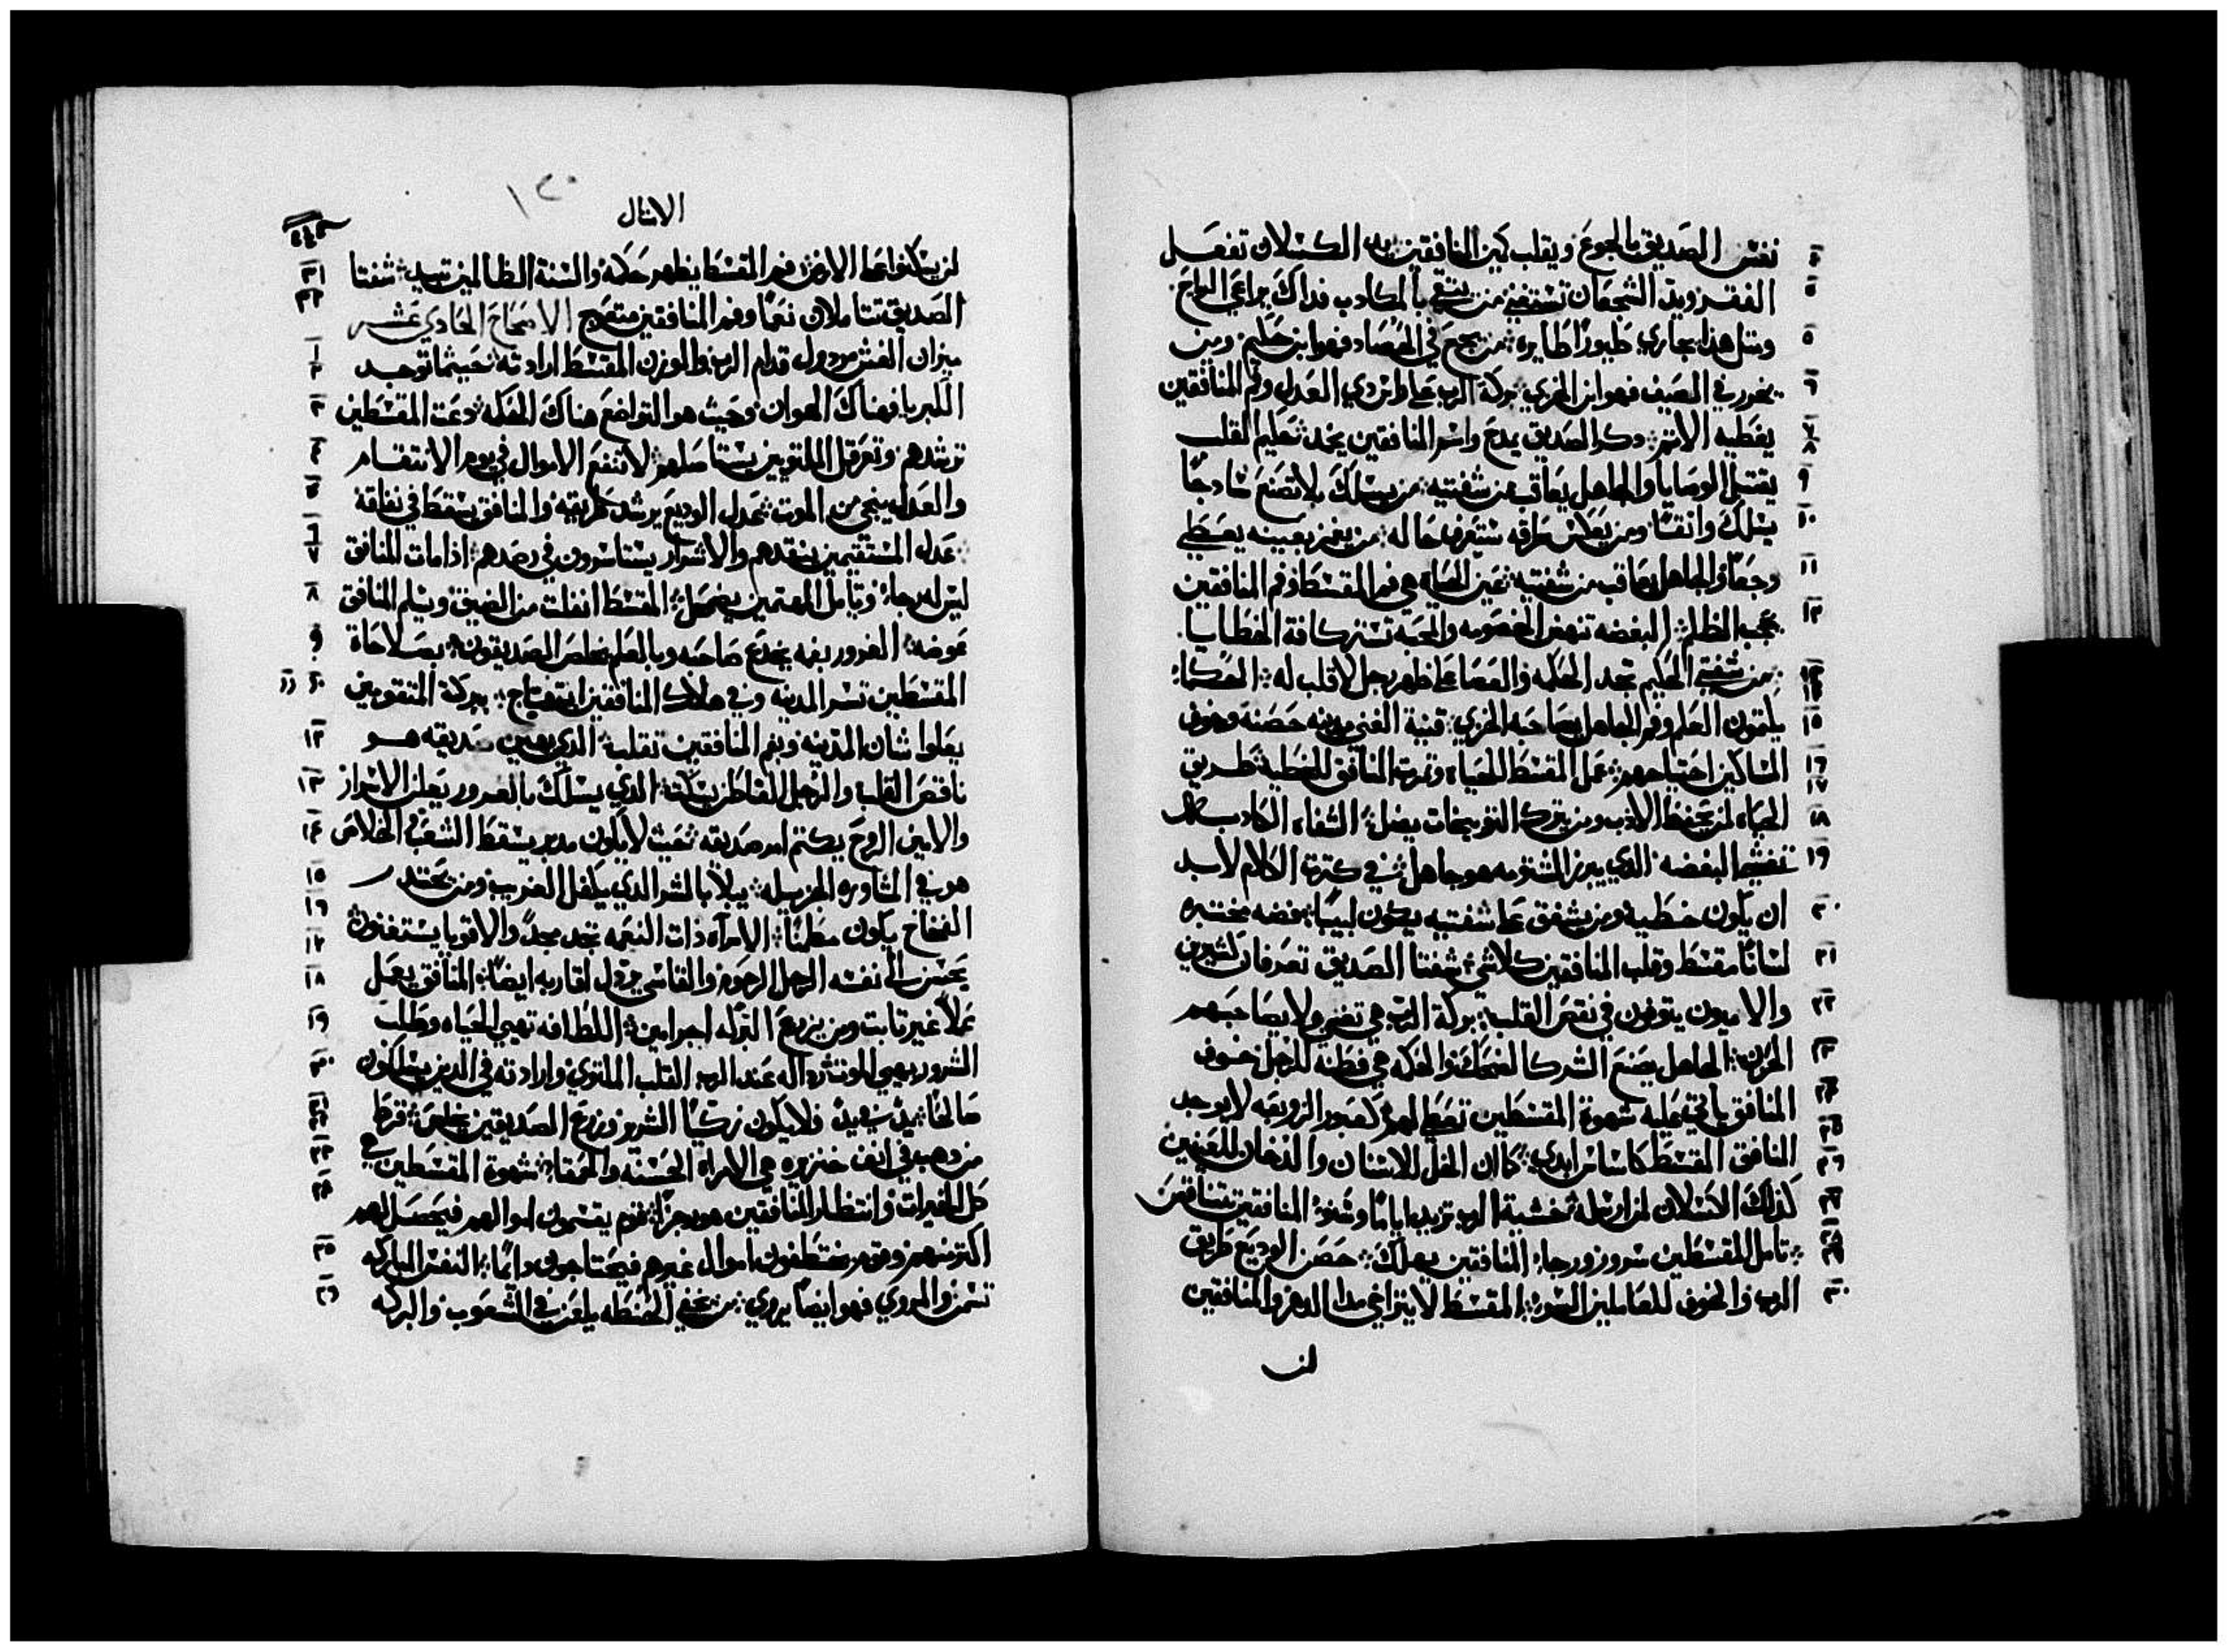 نفس الصديق بالجوع ويقلب كين المنافقين يد الكسلان تفعل
الفقر ويد الشجعان تستغني من يتقي بالمكادب فداك يراعي الرياح
ومتل هذا يجاري طيورًا طايره من يجمع في الحصاد فهو ابن حكيم ومن
يخور في الصيف فهو ابن الخزي بركة الرب على راس دي العدل وفم المنافقين
يغطيه الاتم دكر الصديق يمدح واسم المنافقين يخد حكيم القلب
يقتبل الوصايا والجاهل يعاقب من شفتيه من يسلك بلا تصنع سادجًا
يسلك واتقًا ومن يعكس طرقه ستعرف حاله من يغمز بعينه يعطي
وجعًا والجاهل يعاقب من شفتيه عين الحياه هي فم المقسط وفم المنافقين
يحجب الظلم البغضه تنهض الخصومه والمحبه تستر كافة الخطايا
من شفتي الحكيم تجد الحكمه والعصا على ظهر رجل لا قلب له الحكماء
يكتمون العلم وفم الجاهل يصاحبه الخزي قنية الغني مدينه حصنه وخوف
المساكين احتياجهم عمل المقسط للحياه وتمرت المنافق للخطيه طريق
الحياه لمن يحفظ الادب ومن يترك التوبيخات يضل الشفاه الكادبه
تغشيها البغضه الدي يبرز الشتومه هو جاهل في كترة الكلام لابد
ان يكون خطيه ومن يشفق على شفتيه يكون لبيبًا فضه مختبره
لسانًا مقسط وقلب المنافقين كلاشي شفتا الصديق تعرفان كتيرين
والاميون يتوفون في نقص القلب بركة الرب هي تغني ولا يصاحبهم
الحزن الجاهل يصنع الشر كالضحك والحكمه هي فطنه للرجل خوف
المنافق ياتي عليه شهوة المقسطين تعطي لهم كعبور الزوبعه لا يوجد
المنافق المقسط كاساس ابدي كما ان الخل للاسنان والدخان للعينين
كذلك الكسلان لمن ارسله خشية الرب تزيد اياما وسنوا المنافقين تتناقص
تامل المقسطين سرور ورجاء المنافقين يهلك حصن الوديع طريق
الرب والخوف للعاملين السوء المقسط لا يتزاغي مدا الدهر والمنافقين
لن
الامتال
لن يسكنوا على الارض فم المقسط يظهر حكمه والسنة الظالمين تبيد شفتا
الصديق تتاملان نعمًا وفم المنافقين متعوج الاصحاح الحادي عشر
ميزان الغش مردول قدام الرب والوزن المقسط ارادته حيثما توجد
الكبريا فهناك الهوان وحيث هو التواضع هناك الحكمه دعت المقسطين
ترشدهم وتعرقل الملتويين يستاصلهم لا تنفع الاموال في يوم الانتقام
والعدل ينجي من الموت عدل الوديع يرشد طريقه والمنافق يسقط في نفاقه
عدل المستقيمين ينقدهم والاشرار يستاسرون في رصدهم ادا مات المنافق
ليس له رجاء وتامل المهتمين يضمحل المقسط انفلت من الضيق ويسلم المنافق
عوضه الغرور بفمه يخدع صاحبه وبالعلم يخلص الصديقون بصلاحاة
المقسطين تسر المدينه وفي هلاك المنافقين ابتهاج ببركة المتقومين
يعلوا شان المدينه وبفم المنافقين تقلب الدي يهين صديقه هو
ناقص القلب والرجل الفاطن يسكت الدي يسلك بالغرور يعلن الاسرار
والامين الروح يكتم امر صديقه حيث لا يكون مدبر يسقط الشعب الخلاص
هو في المشاوره الجزيله يبلا بالشر الدي يكفل الغريب ومن يحتدر
الفخاخ يكون مطمنًا الامرآه ذات النعمه تجد مجدًا والاقويا يستغنون
يحسن الى نفسه الرجل الرحوم والقاسي يردل اقاربه ايضًا المنافق يعمل
عملًا غير تابت ومن يزرع العدل له اجر امين اللطافه تهيي الحياه وطلب
الشرور يهيي الموت رداله عند الرب القلب الملتوي وارادته في الدين يسلكون
صالحًا يد في يد فلا يكون زكيًا الشرير وزرع الصديقين يخلص قرط
من دهب في انف خنزيره هي الامراه الحسنه والحمقاء شهوة المقسطين هي
كل الخيرات وانتظار المنافقين هو رجزًا قوم يقسمون اموالهم فيحصل لهم
اكتر منهم وقوم يختطفون اموال غيرهم فيحتاجون دايمًا النفس المباركه
تسمن والمروي فهو ايضًا يروي من يخفي الحنطه يلعن في الشعوب والبركه